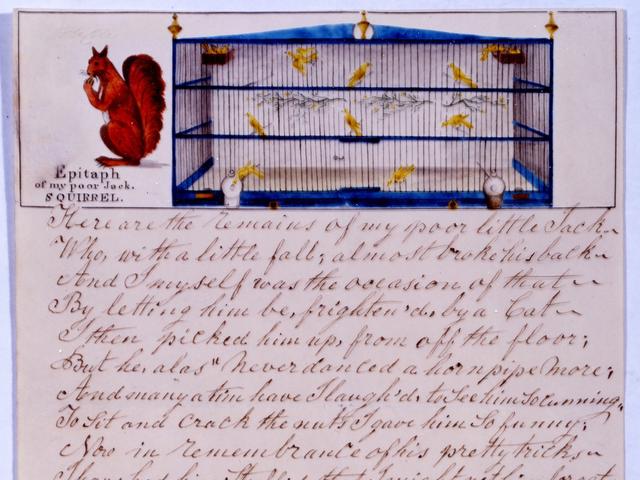 Epitaph
of my poor Jack.
SQUIRREL.
Here are the remains of my poor little Jack~
Who, with a little fall; almost broke his back~
And I myself was the occasion of that~
By letting him be, frighten'd, by a Cat~
I then picked him up, from off the floor;
But he, alas" never danced a hornpipe more;
And many a time have I laugh'd, to See him So cunning,
To Sit and crack the nuts I gave him So funny;
Now in remembrance of his pretty tricks~
him that I might not him forget